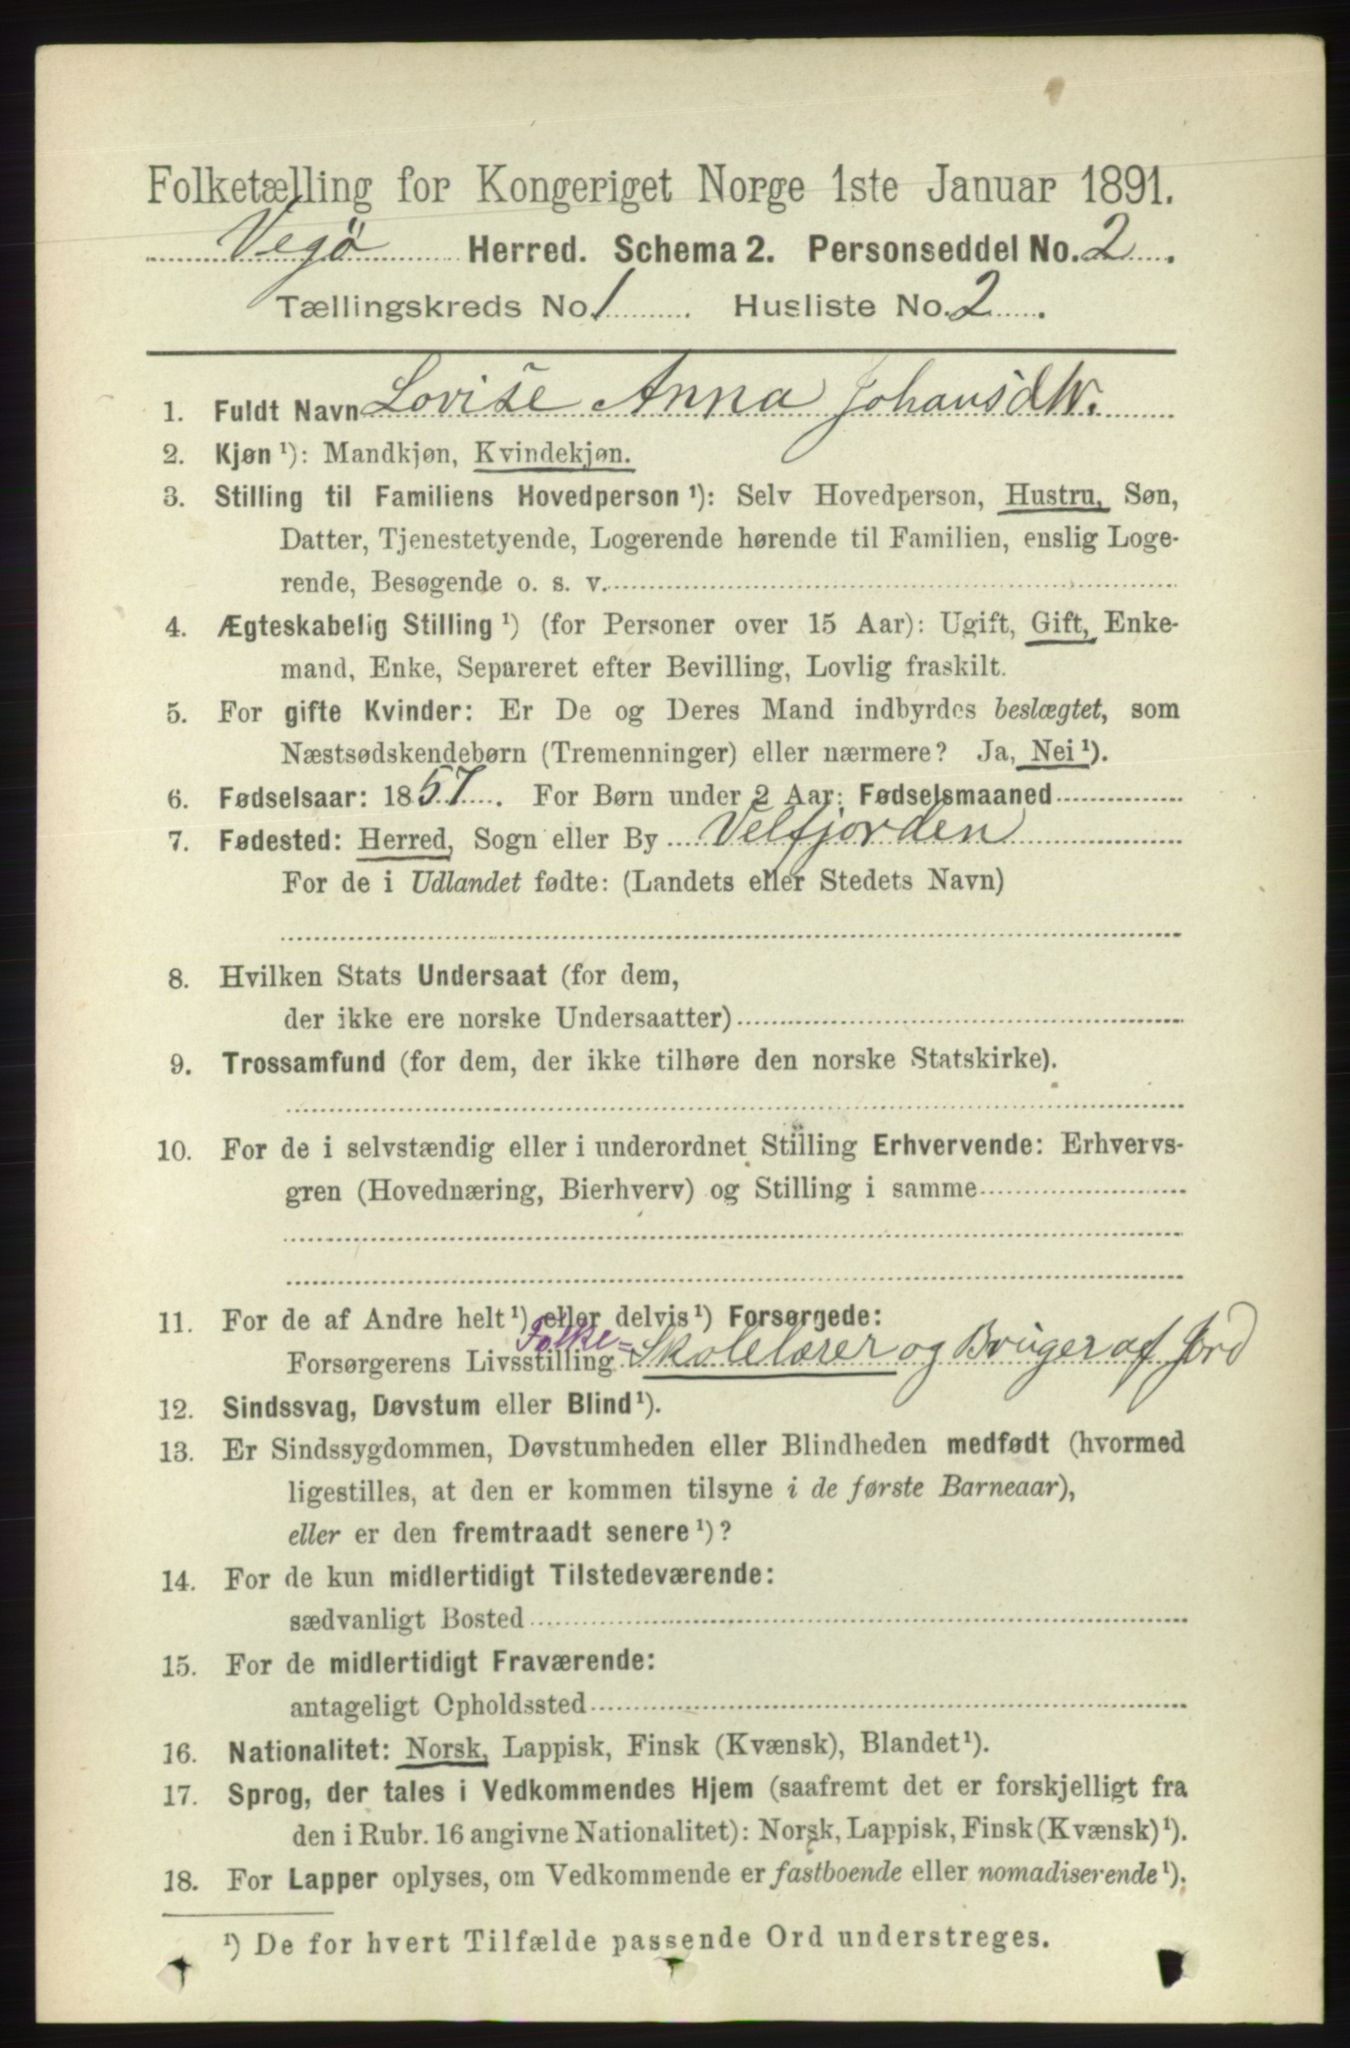 Folketælling for Kongeriget Norge 1ste Januar 1891.
Vegø Herred. Schema 2. Personseddel No. 2.
Tællingskreds No. 1 Husliste No. 2.
1. Fuldt Navn Lovise Anna Johansdtr.
2. Kjøn ¹): Mandkjøn, Kvindekjøn.
3. Stilling til Familiens Hovedperson ¹): Selv Hovedperson, Hustru, Søn,
Datter, Tjenestetyende, Logerende hørende til Familien, enslig Loge-
rende, Besøgende o. s. v.
4. Ægteskabelig Stilling ¹) (for Personer over 15 Aar): Ugift, Gift, Enke-
mand, Enke, Separeret efter Bevilling, Lovlig fraskilt.
5. For gifte Kvinder: Er De og Deres Mand indbyrdes beslægtet, som
Næstsødskendebørn (Tremenninger) eller nærmere? Ja, Nei ¹).
6. Fødselsaar: 1857. For Børn under 2 Aar: Fødselsmaaned
7. Fødested: Herred, Sogn eller By Velfjorden
For de i Udlandet fødte: (Landets eller Stedets Navn)
8. Hvilken Stats Undersaat (for dem,
der ikke ere norske Undersaatter)
9. Trossamfund (for dem, der ikke tilhøre den norske Statskirke).
10. For de i selvstændig eller i underordnet Stilling Erhvervende: Erhvervs-
gren (Hovednæring, Bierhverv) og Stilling i samme
11. For de af Andre helt ¹) eller delvis ¹) Forsørgede:
Forsørgerens Livsstilling Folke= Skolelærer og Bruger af Jord
12. Sindssvag, Døvstum eller Blind ¹).
13. Er Sindssygdommen, Døvstumheden eller Blindheden medfødt (hvormed
ligestilles, at den er kommen tilsyne i de første Barneaar),
eller er den fremtraadt senere ¹)?
14. For de kun midlertidigt Tilstedeværende:
sædvanligt Bosted
15. For de midlertidigt Fraværende:
antageligt Opholdssted
16. Nationalitet: Norsk, Lappisk, Finsk (Kvænsk), Blandet ¹).
17. Sprog, der tales i Vedkommendes Hjem (saafremt det er forskjelligt fra
den i Rubr. 16 angivne Nationalitet): Norsk, Lappisk, Finsk (Kvænsk) ¹).
18. For Lapper oplyses, om Vedkommende er fastboende eller nomadiserende ¹).
¹) De for hvert Tilfælde passende Ord understreges.